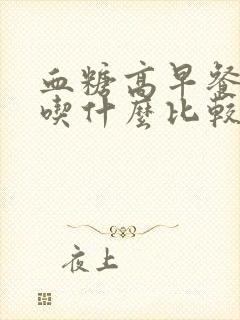 血糖高早餐
喫什麼比較
夜上